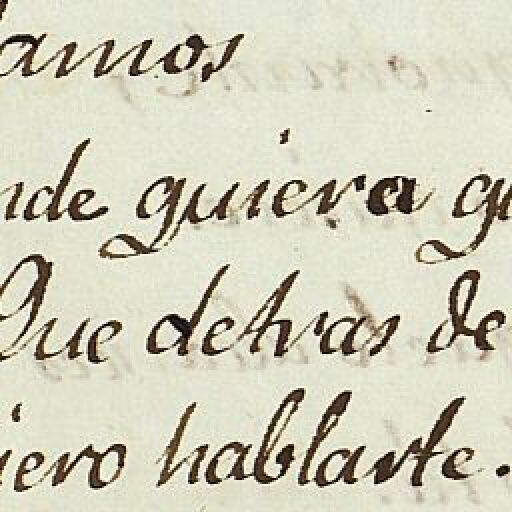 lamos
nde quiera qu
Que detras de
iero hablarte.